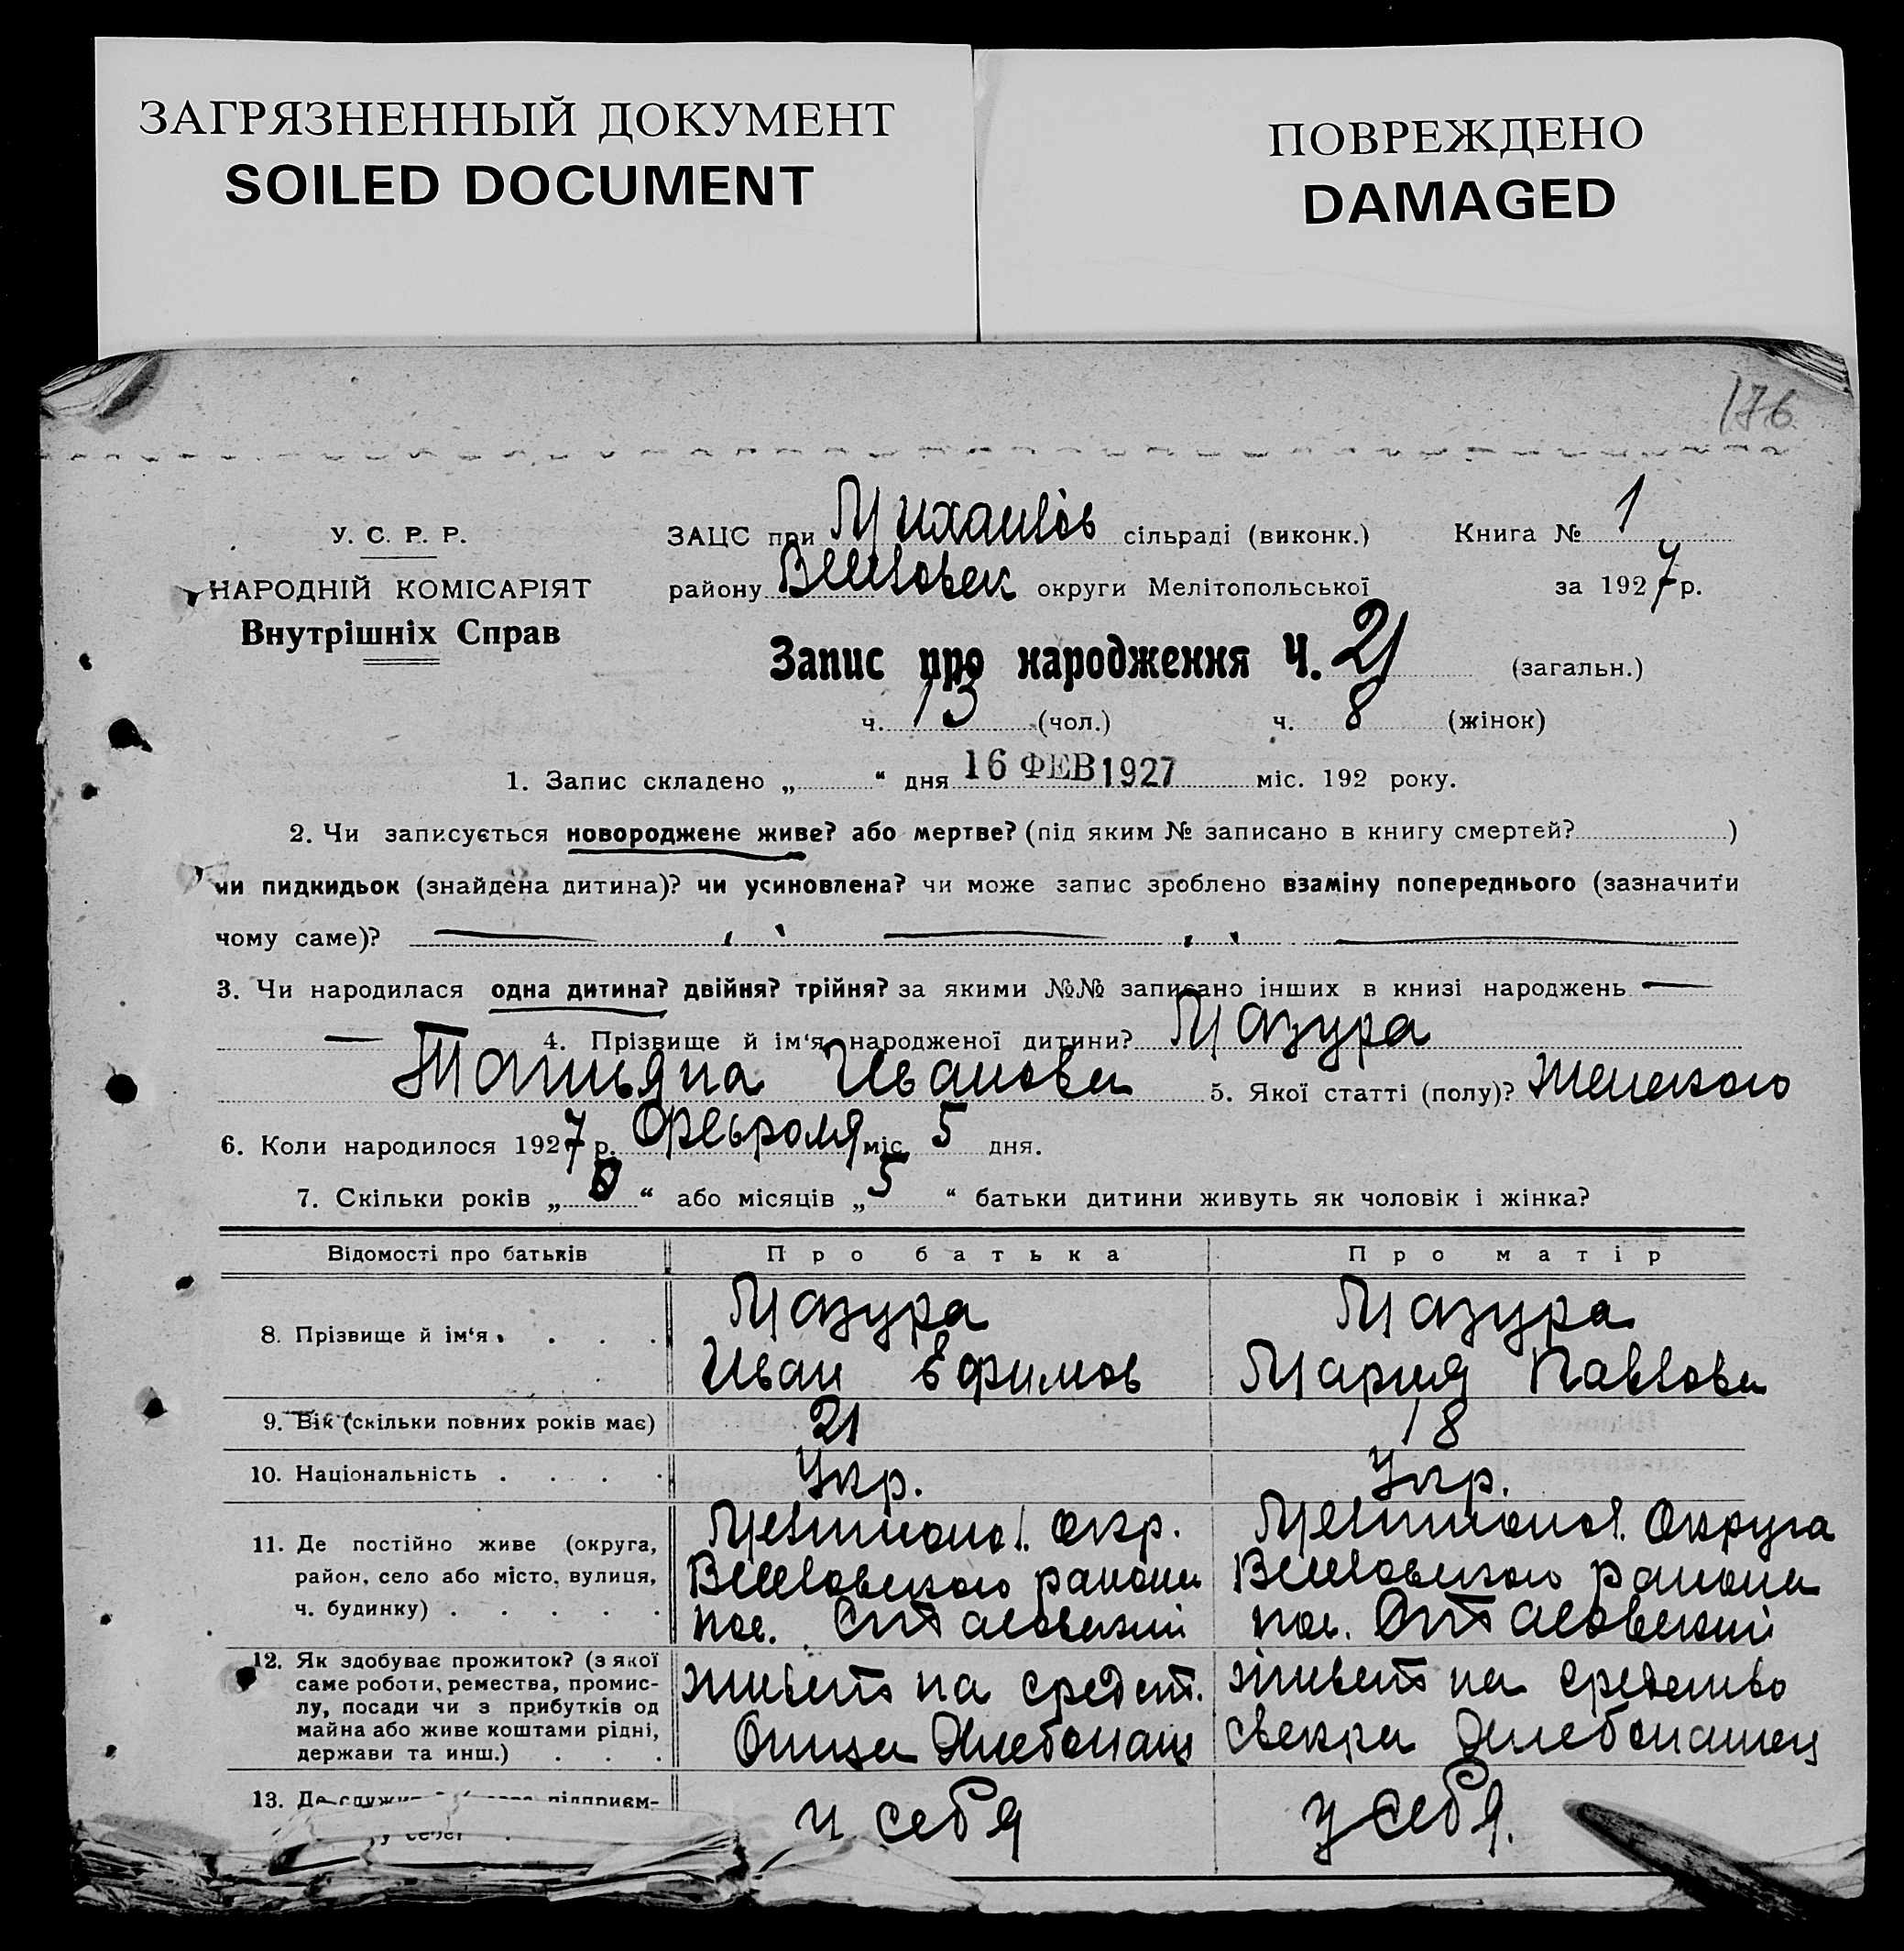 ЗАГРЯЗНЕННЫЙ ДОКУМЕНТ
SOILED DOCUMENT
ПОВРЕЖДЕНО
DAMAGED
176
У. С. Р. Р.
НАРОДНІЙ КОМІСАРІЯТ
Внутрішніх Справ
ЗАЦС при Михайлов сільраді (виконк.) Книга № 1
району Веселовск округи Мелітопольської за 1927 р.
Запис про народження Ч. 21 (загальн.)
ч. 13 (чол.) ч. 8 (жінок)
1. Запис складено „ “ дня 16 ФЕВ 1927 міс. 192 року.
2. Чи записується новороджене живе? або мертве? (під яким № записано в книгу смертей? )
чи пидкидьок (знайдена дитина)? чи усиновлена? чи може запис зроблено взаміну попереднього (зазначити
чому саме)? — „ — „ —
3. Чи народилася одна дитина? двійня? трійня? за якими №№ записано інших в книзі народжень —
— 4. Прізвище й ім‘я народженої дитини? Мазура
Татьяна Иванова 5. Якої статті (полу)? Женского
6. Коли народилося 1927 р. Февраля міс. 5 дня.
7. Скільки років „ 0 “ або місяців „ 5 “ батьки дитини живуть як чоловік і жінка?
Відомості про батьків Про батька Про матір
8. Прізвище й ім‘я . . . . Мазура Мазура
Иван Ефимов Мария Павлова
9. Вік (скільки повних років має) 21 18
10. Національність . . . . Укр. Укр.
11. Де постійно живе (округа, Мелитопол. окр. Мелитопол. Округа
район, село або місто, вулиця, района района
ч. будинку) . . . . . пос. пос.
12. Як здобуває прожиток? (з якої
саме роботи, ремества, промис- живет на средст. живет на средство
лу, посади чи з прибутків од
майна або живе коштами рідні, Отца Хлебопаш свекра Хлебопашец
держави та инш.) . . .
13. Де служить підприєм- у себя у себя.
у себе?